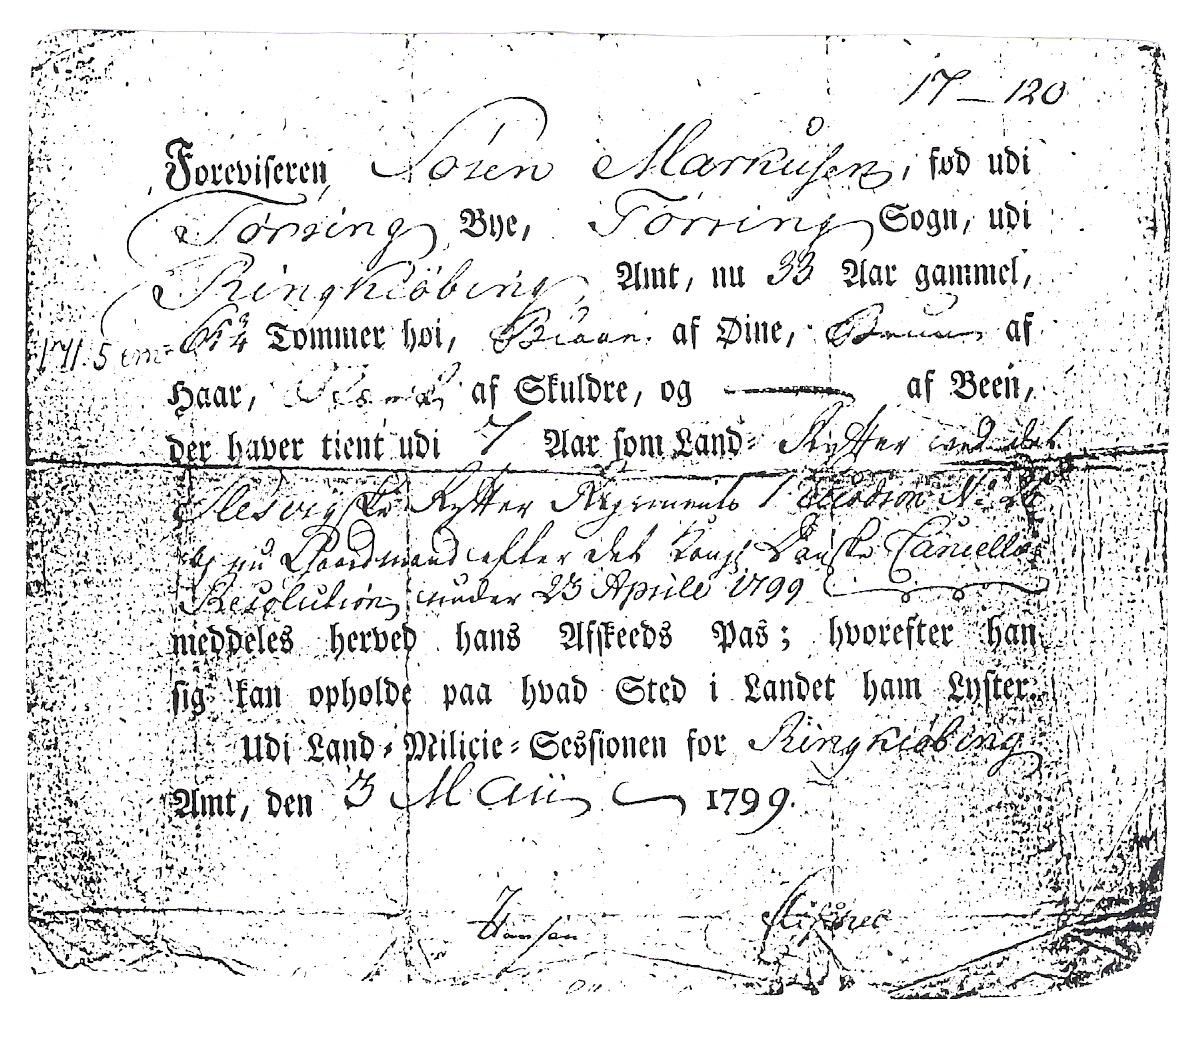 17 — 120
Foreviseren Søren Markusen, fød udi
Tørring Bye, Tørring Sogn, udi
Ringkiøbing Amt, nu 33 Aar gammel,
171.5 cm 61¾ Tommer høi, Blaae af Øine, Bruun af
Haar, af Skuldre, og — af Been,
der haver tient udi 7 Aar som Land- Rytter ved det
Slesvigske Rytter Regiments 1
nu Gaardmand efter det Kongl Danske Cancellie
Resolution under 23 Aprili 1799
meddeles herved hans Afskeeds Pas; hvorefter han
sig kan opholde paa hvad Sted i Landet ham Lyster.
Udi Land-Milicie-Sessionen for Ringkiøbing
Amt, den 3 Maii 1799.
Hansen